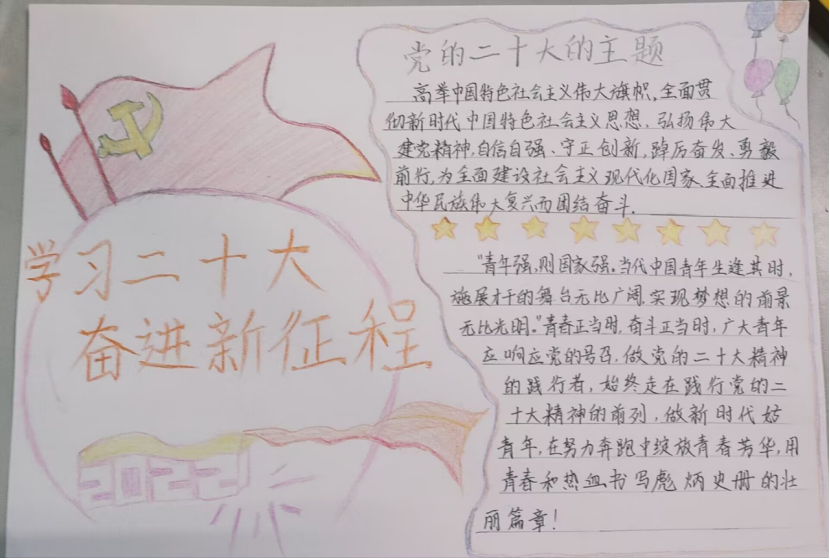 学习二十大
奋进新征程
2022
党的二十大的主题
高举中国特色社会主义伟大旗帜,全面贯
彻新时代中国特色社会主义思想,弘扬伟大
建党精神,自信自强、守正创新,踔厉奋发、勇毅
前行,为全面建设社会主义现代化国家、全面推进
中华民族伟大复兴而团结奋斗.
"青年强,则国家强。当代中国青年生逢其时,
施展才干的舞台无比广阔,实现梦想的前景
无比光明。"青春正当时,奋斗正当时,广大青年
应响应党的号召,做党的二十大精神
的践行者,始终走在践行党的二
十大精神的前列,做新时代好
青年,在努力奔跑中绽放青春芳华,用
青春和热血书写彪炳史册的壮
丽篇章!